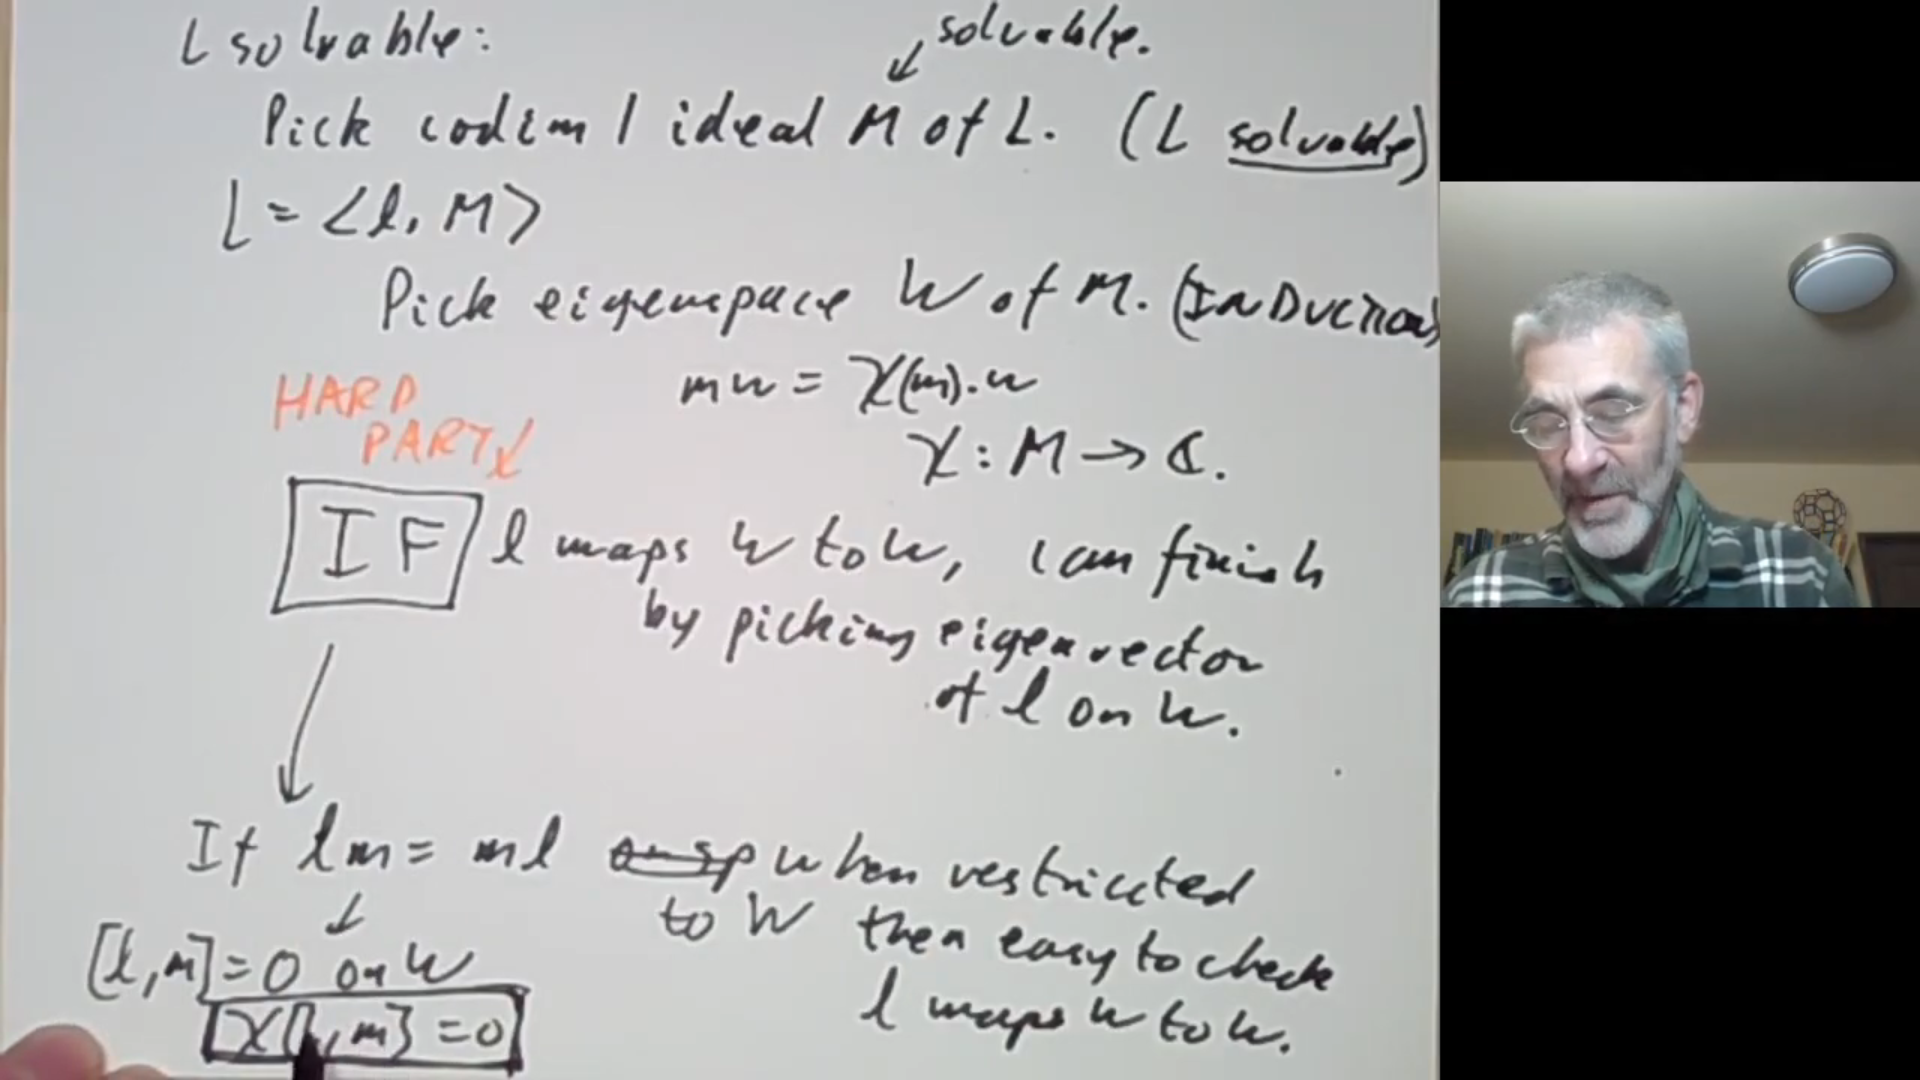 L solvable:
solvable.
Pick codim 1 ideal M of L. (L solvable)
L = <l, M>
Pick eigenspace W of M. (INDUCTION)
HARD
PART
mw = χ(m).w
χ: M → ℂ.
IF l maps W to W, can finish
by picking eigenvector
of l on W.
If lm = ml when restricted
to W then easy to check
l maps W to W.
[l,m]=0 on W
χ[l,m] = 0